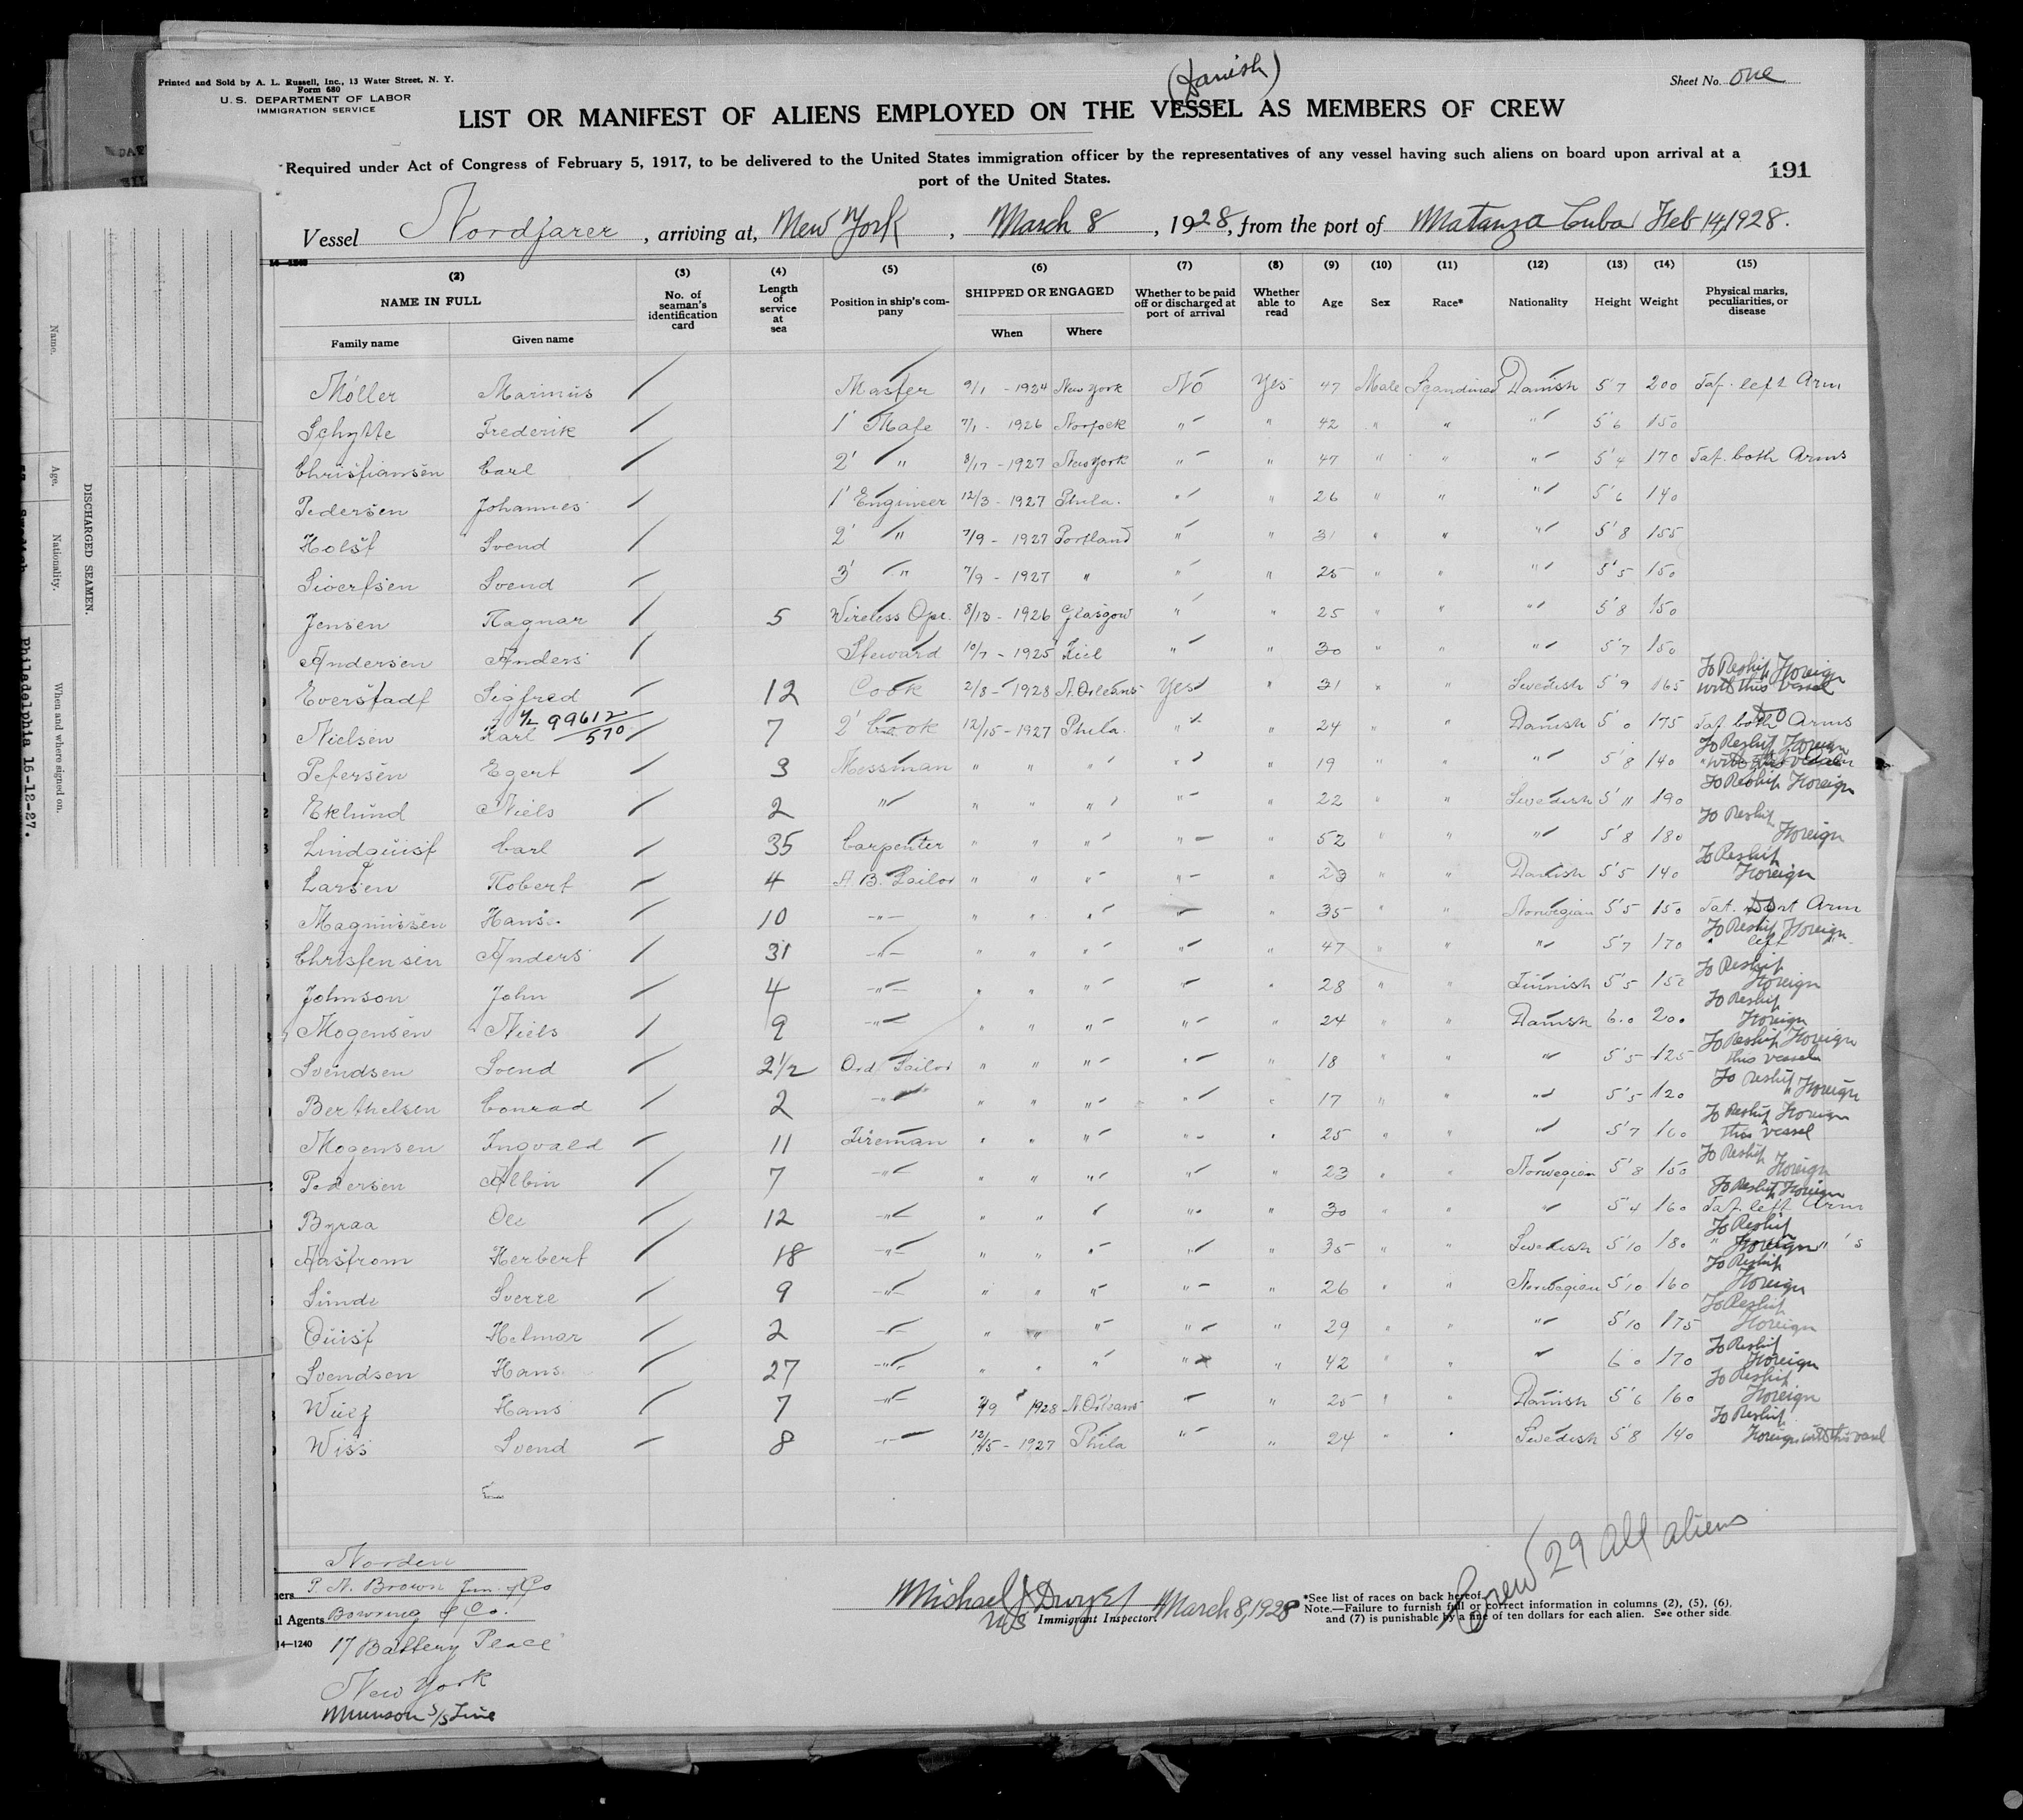 Printed and Sold by A. L. Russell, Inc., 13 Water Street, N. Y.
Form 680
U. S. DEPARTMENT OF LABOR
IMMIGRATION SERVICE
(Danish)
Sheet No. One
LIST OR MANIFEST OF ALIENS EMPLOYED ON THE VESSEL AS MEMBERS OF CREW
Required under Act of Congress of February 5, 1917, to be delivered to the United States immigration officer by the representatives of any vessel having such aliens on board upon arrival at a
port of the United States.
191
Vessel Nordfarer, arriving at, New York, March 8, 1928, from the port of Matanza Cuba Feb 14, 1928.
(2) (3) (4) (5) (6) (7) (8) (9) (10) (11) (12) (13) (14) (15)
NAME IN FULL No. of seaman's identification card Length of service at sea Position in ship's company SHIPPED OR ENGAGED Whether to be paid off or discharged at port of arrival Whether able to read Age Sex Race* Nationality Height Weight Physical marks, peculiarities, or disease
Family name Given name When Where
Möller Marinus Master 9/1 - 1924 New York No Yes 47 Male Scandinav Danish 5'7 200 Tat. left Arm
Schytte Frederik 1' Mate 7/1 - 1926 Norfolk " " 42 " " " 5'6 150
Christiansen Carl 2' " 8/17 - 1927 New York " " 47 " " " 5'4 170 Tat. both Arms
Pedersen Johannes 1' Engineer 12/3 - 1927 Phila. " " 26 " " " 5'6 140
Holst Svend 2' " 7/9 - 1927 Portland " " 31 " " " 5'8 155
Sivertsen Svend 3' " 7/9 - 1927 " " " 25 " " " 5'5 150
Jensen Ragnar 5 Wireless Ope. 8/13 - 1926 Glasgow " " 25 " " " 5'8 150
Andersen Anders Steward 10/7 - 1925 Kiel " " 30 " " " 5'7 150
Everstadt Sigfred 12 Cook 2/8 - 1928 N. Orleans Yes " 31 " " Swedish 5'9 165 To Reship Foreign with this vessel
99612/570
Nielsen Karl 7 2' Cook 12/15 - 1927 Phila. " " 24 " " Danish 5'0 175 Tat both Arms Do
Petersen Egert 3 Messman " " " " " 19 " " " 5'8 140 To Reship Foreign
Eklund Niels 2 " " " " " " 22 " " Swedish 5'11 190 To Reship Foreign
Lindquist Carl 35 Carpenter " " " " " 52 " " " 5'8 180 To Reship Foreign
Larsen Robert 4 A. B. Sailor " " " " " 23 " " Danish 5'5 140 To Reship Foreign
Magnussen Hans 10 -"- " " " " 35 " " Norwegian 5'5 150 Tat. Arm
Christensen Anders 31 -"- " " " " " 47 " " " 5'7 170 To Reship Foreign " left "
Johnson John 4 -"- " " " " " 28 " " Finnish 5'5 To Reship Foreign
Mogensen Niels 9 -"- " " " " " 24 " " Danish 6.0 200 To Reship Foreign
Svendsen Svend 2½ Ord Sailor " " " " " 18 " " " 5'5 125 To Reship Foreign this vessel
Berthelsen Conrad 2 -"- " " " " " 17 " " " 5'5 120 To Reship Foreign
Mogensen Ingvald 11 Fireman " " " " " 25 " " " 5'7 160 To Reship Foreign this vessel
Pedersen Albin 7 -"- " " " " " 23 " " Norwegian 5'8 150 To Reship Foreign
Byraa Ole 12 -"- " " " " " 30 " " " 5'4 160 To Reship Foreign Tat. left Arm
Aastrom Herbert 18 -"- " " " " " 35 " " Swedish 5'10 180 To Reship Foreign " 's
Sunde Sverre 9 -"- " " " " " 26 " " Norwegian 5'10 160 To Reship Foreign
Quist Helmar 2 -"- " " " " " 29 " " " 5'10 175 To Reship Foreign
Svendsen Hans 27 -"- " " " " " 42 " " " 6.0 170 To Reship Foreign
Hans 7 -"- 1928 N. Orleans " " 25 " " Danish 5'6 160 To Reship Foreign
Wiss Svend 8 -"- 12/15 - 1927 Phila " " 24 " " Swedish 5'8 140 To Reship Foreign with this vessel
Crew 29 All aliens
Norden
ners P. N. Brown Jun. & Co
l Agents Bowring & Co.
14—1240 17 Battery Place
New York
Munson S/S Line
Michael J Dwyer March 8, 1928
US Immigrant Inspector
*See list of races on back hereof.
Note.—Failure to furnish full or correct information in columns (2), (5), (6),
and (7) is punishable by a fine of ten dollars for each alien. See other side.
DISCHARGED SEAMEN.
Name. Age. Nationality. When and where signed on.
Philadelphia 16-12-27.